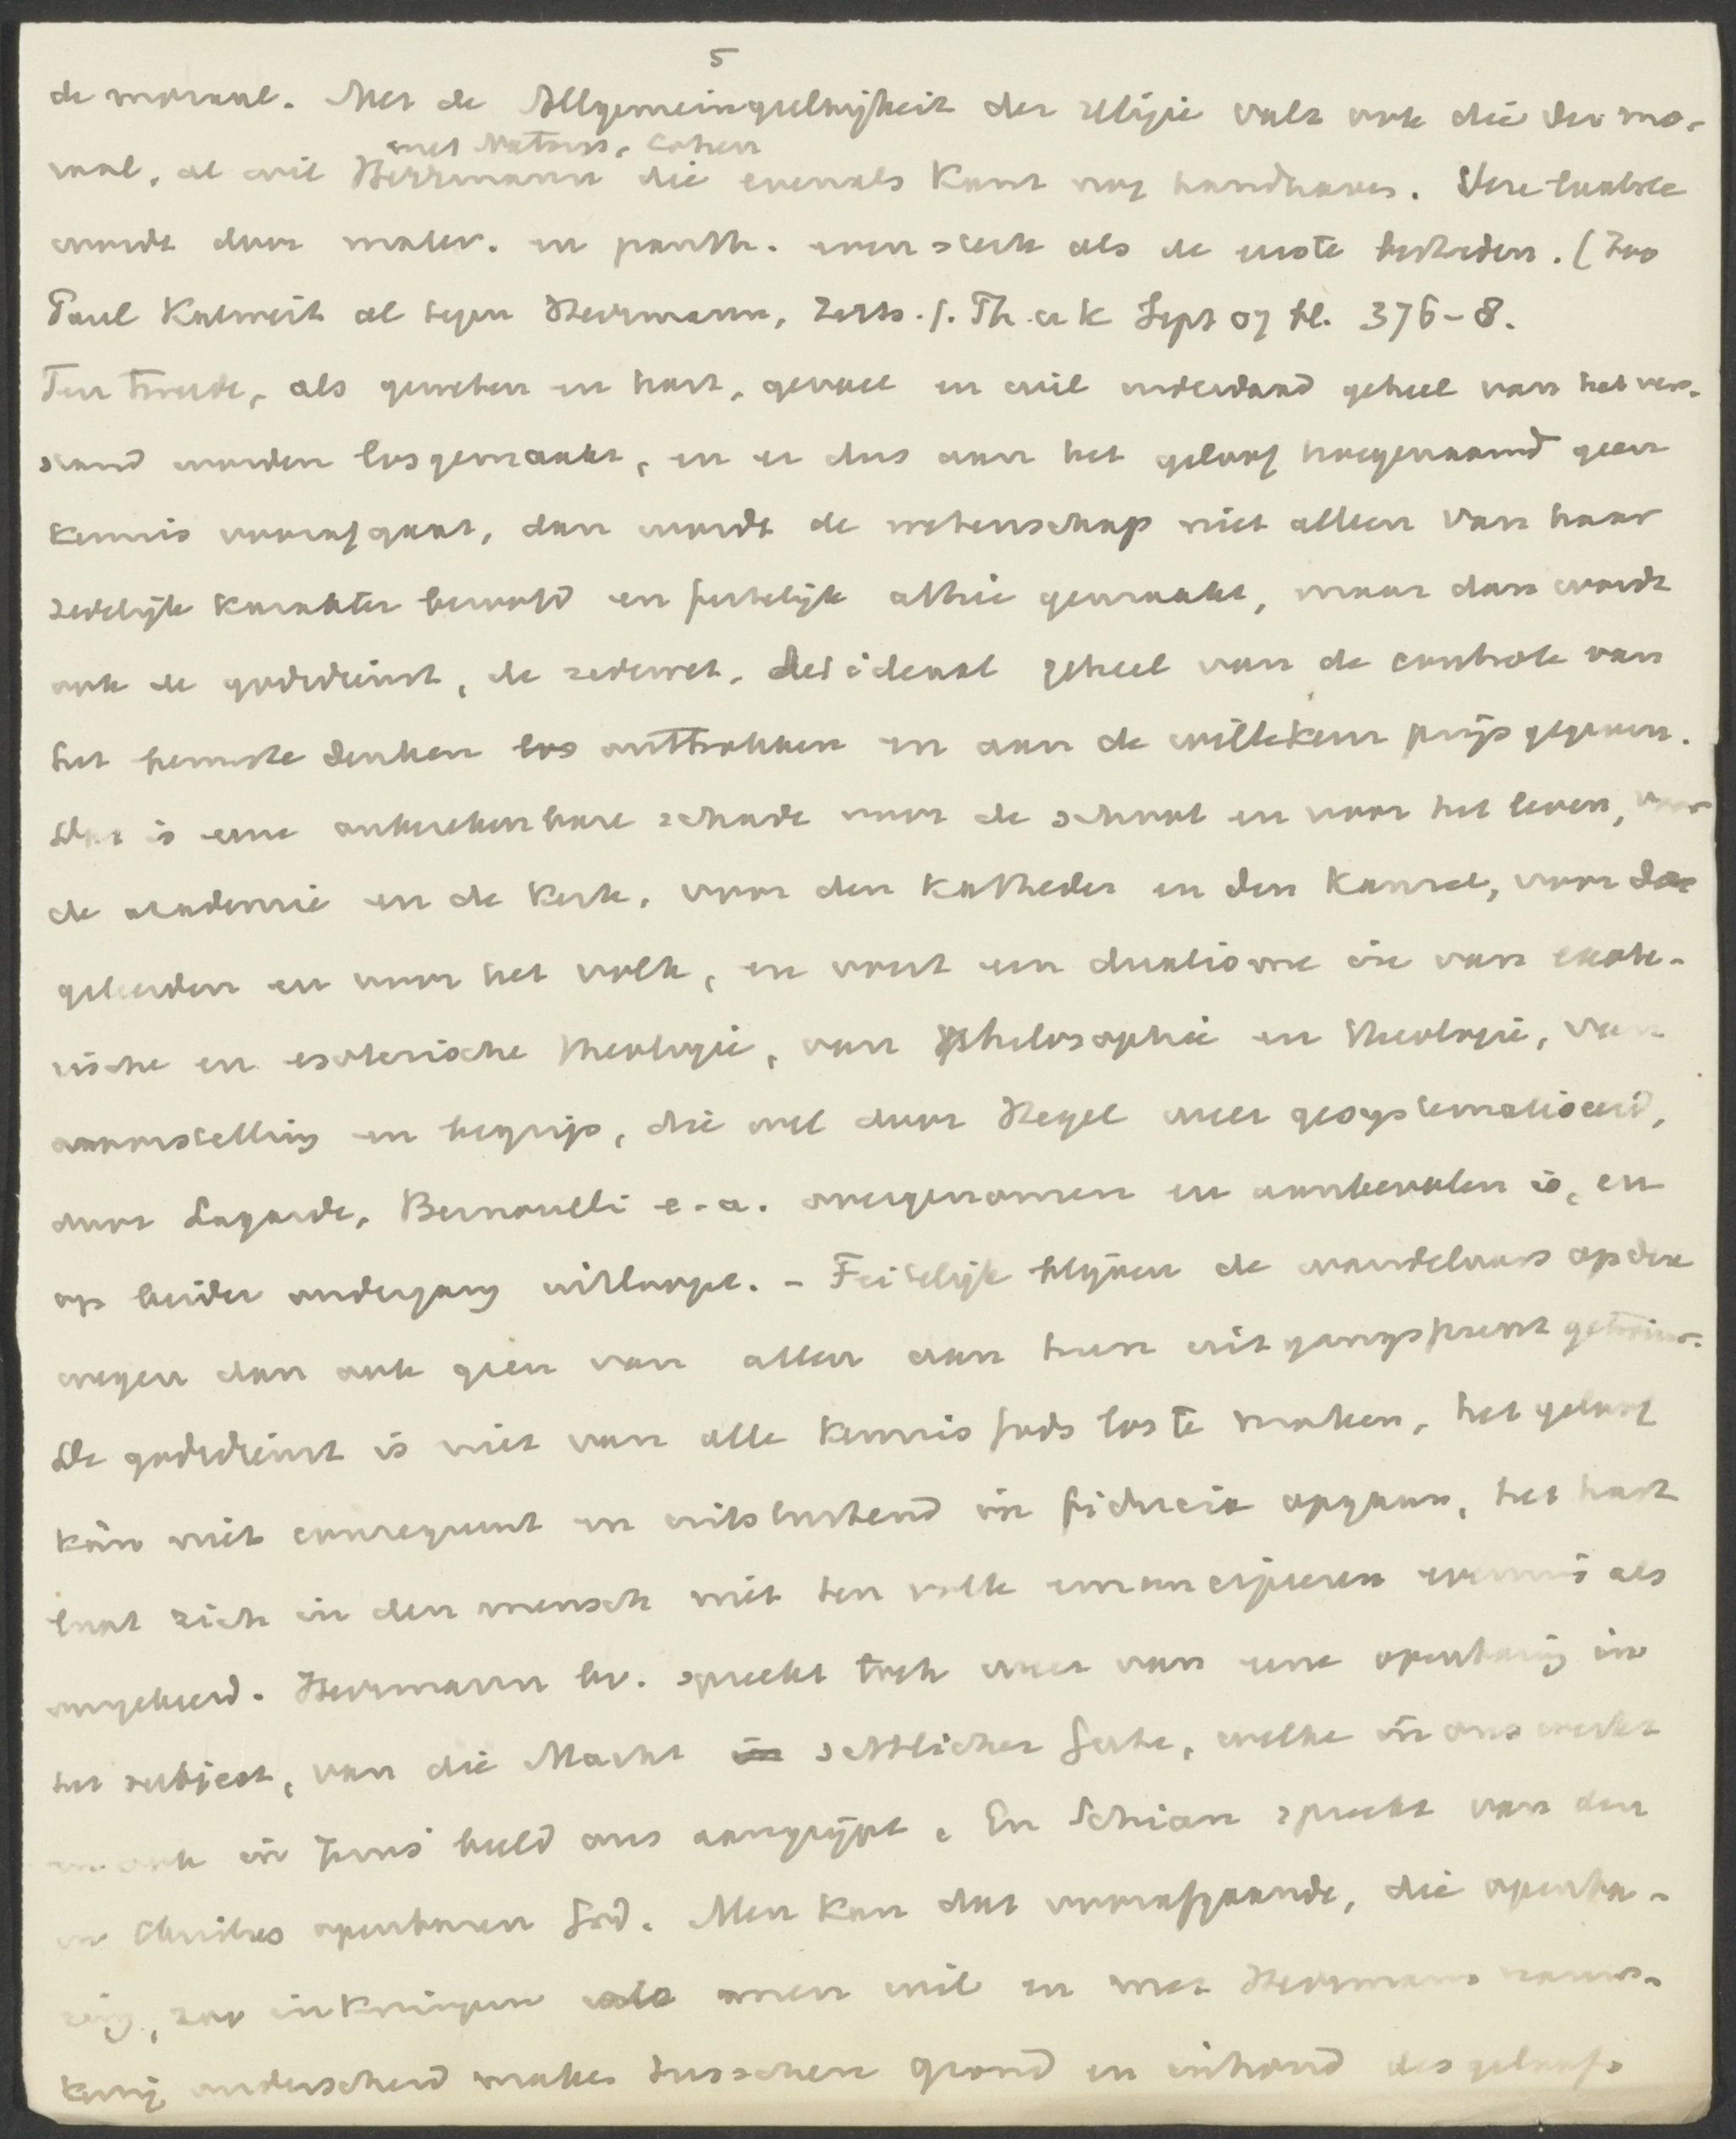 5
de moraal. Met de Allgemeingültigkeit der religie valt ook die der mo-
met Natorp, Cohen
raal, al wil Herrmann die evenals Kant nog handhaven. Deze laatste
wordt door mater. en panth. even sterk als de eerste bestreden. (Zoo
Paul Kalweit al tegen Herrmann, Zeits. f. Th. u K Sept 07 bl. 376-8.
Ten tweede, als geweten en hart, gevoel en wil inderdaad geheel van het ver-
stand worden losgemaakt, en er dus aan het geloof hoegenaamd geen
kennis voorafgaat, dan wordt de wetenschap niet alleen van haar
zedelijk karakter beroofd en feitelijk atheïe gemaakt, maar dan wordt
ook de godsdienst, de zedewet, het ideaal geheel van de controle van
het bewuste denken los onttrokken en aan de willekeur prijs gegeven.
Dat is eene onberekenbare schade voor de school en voor het leven, voor
de academie en de kerk, voor den katheder en den kansel, voor de
geleerden en voor het volk, en voert een dualisme in van exote-
rische en esoterische theologie, van philosophie en theologie, van
voorstelling en begrip, die wel door Hegel weer gesystematiseerd,
door Lagarde, Bernoulli e. a. overgenomen en aanbevolen is, en
op beider ondergang uitloopt. - Feitelijk blijven de wandelaars op deze
wegen dan ook geen van allen aan hun uitgangspunt getrouw.
De godsdienst is niet van alle kennis Gods los te maken, het geloof
kan niet consequent en uitsluitend in fiducia opgaan, het hart
laat zich in den mensch niet ten volle emancipeeren evenmin als
omgekeerd. Herrmann bv. spreekt toch weer van eene openbaring in
het subject, van die Macht sittlicher Güte, welke in ons werkt
en ook in Jezus' beeld ons aangrijpt. En Schian spreekt van den
in Christus openbaren God. Men kan dat voorafgaande, die openba-
ring, zoo inkrimpen als men wil en met Herrmann nauw-
keurig onderscheid maken tusschen grond en inhoud des geloofs